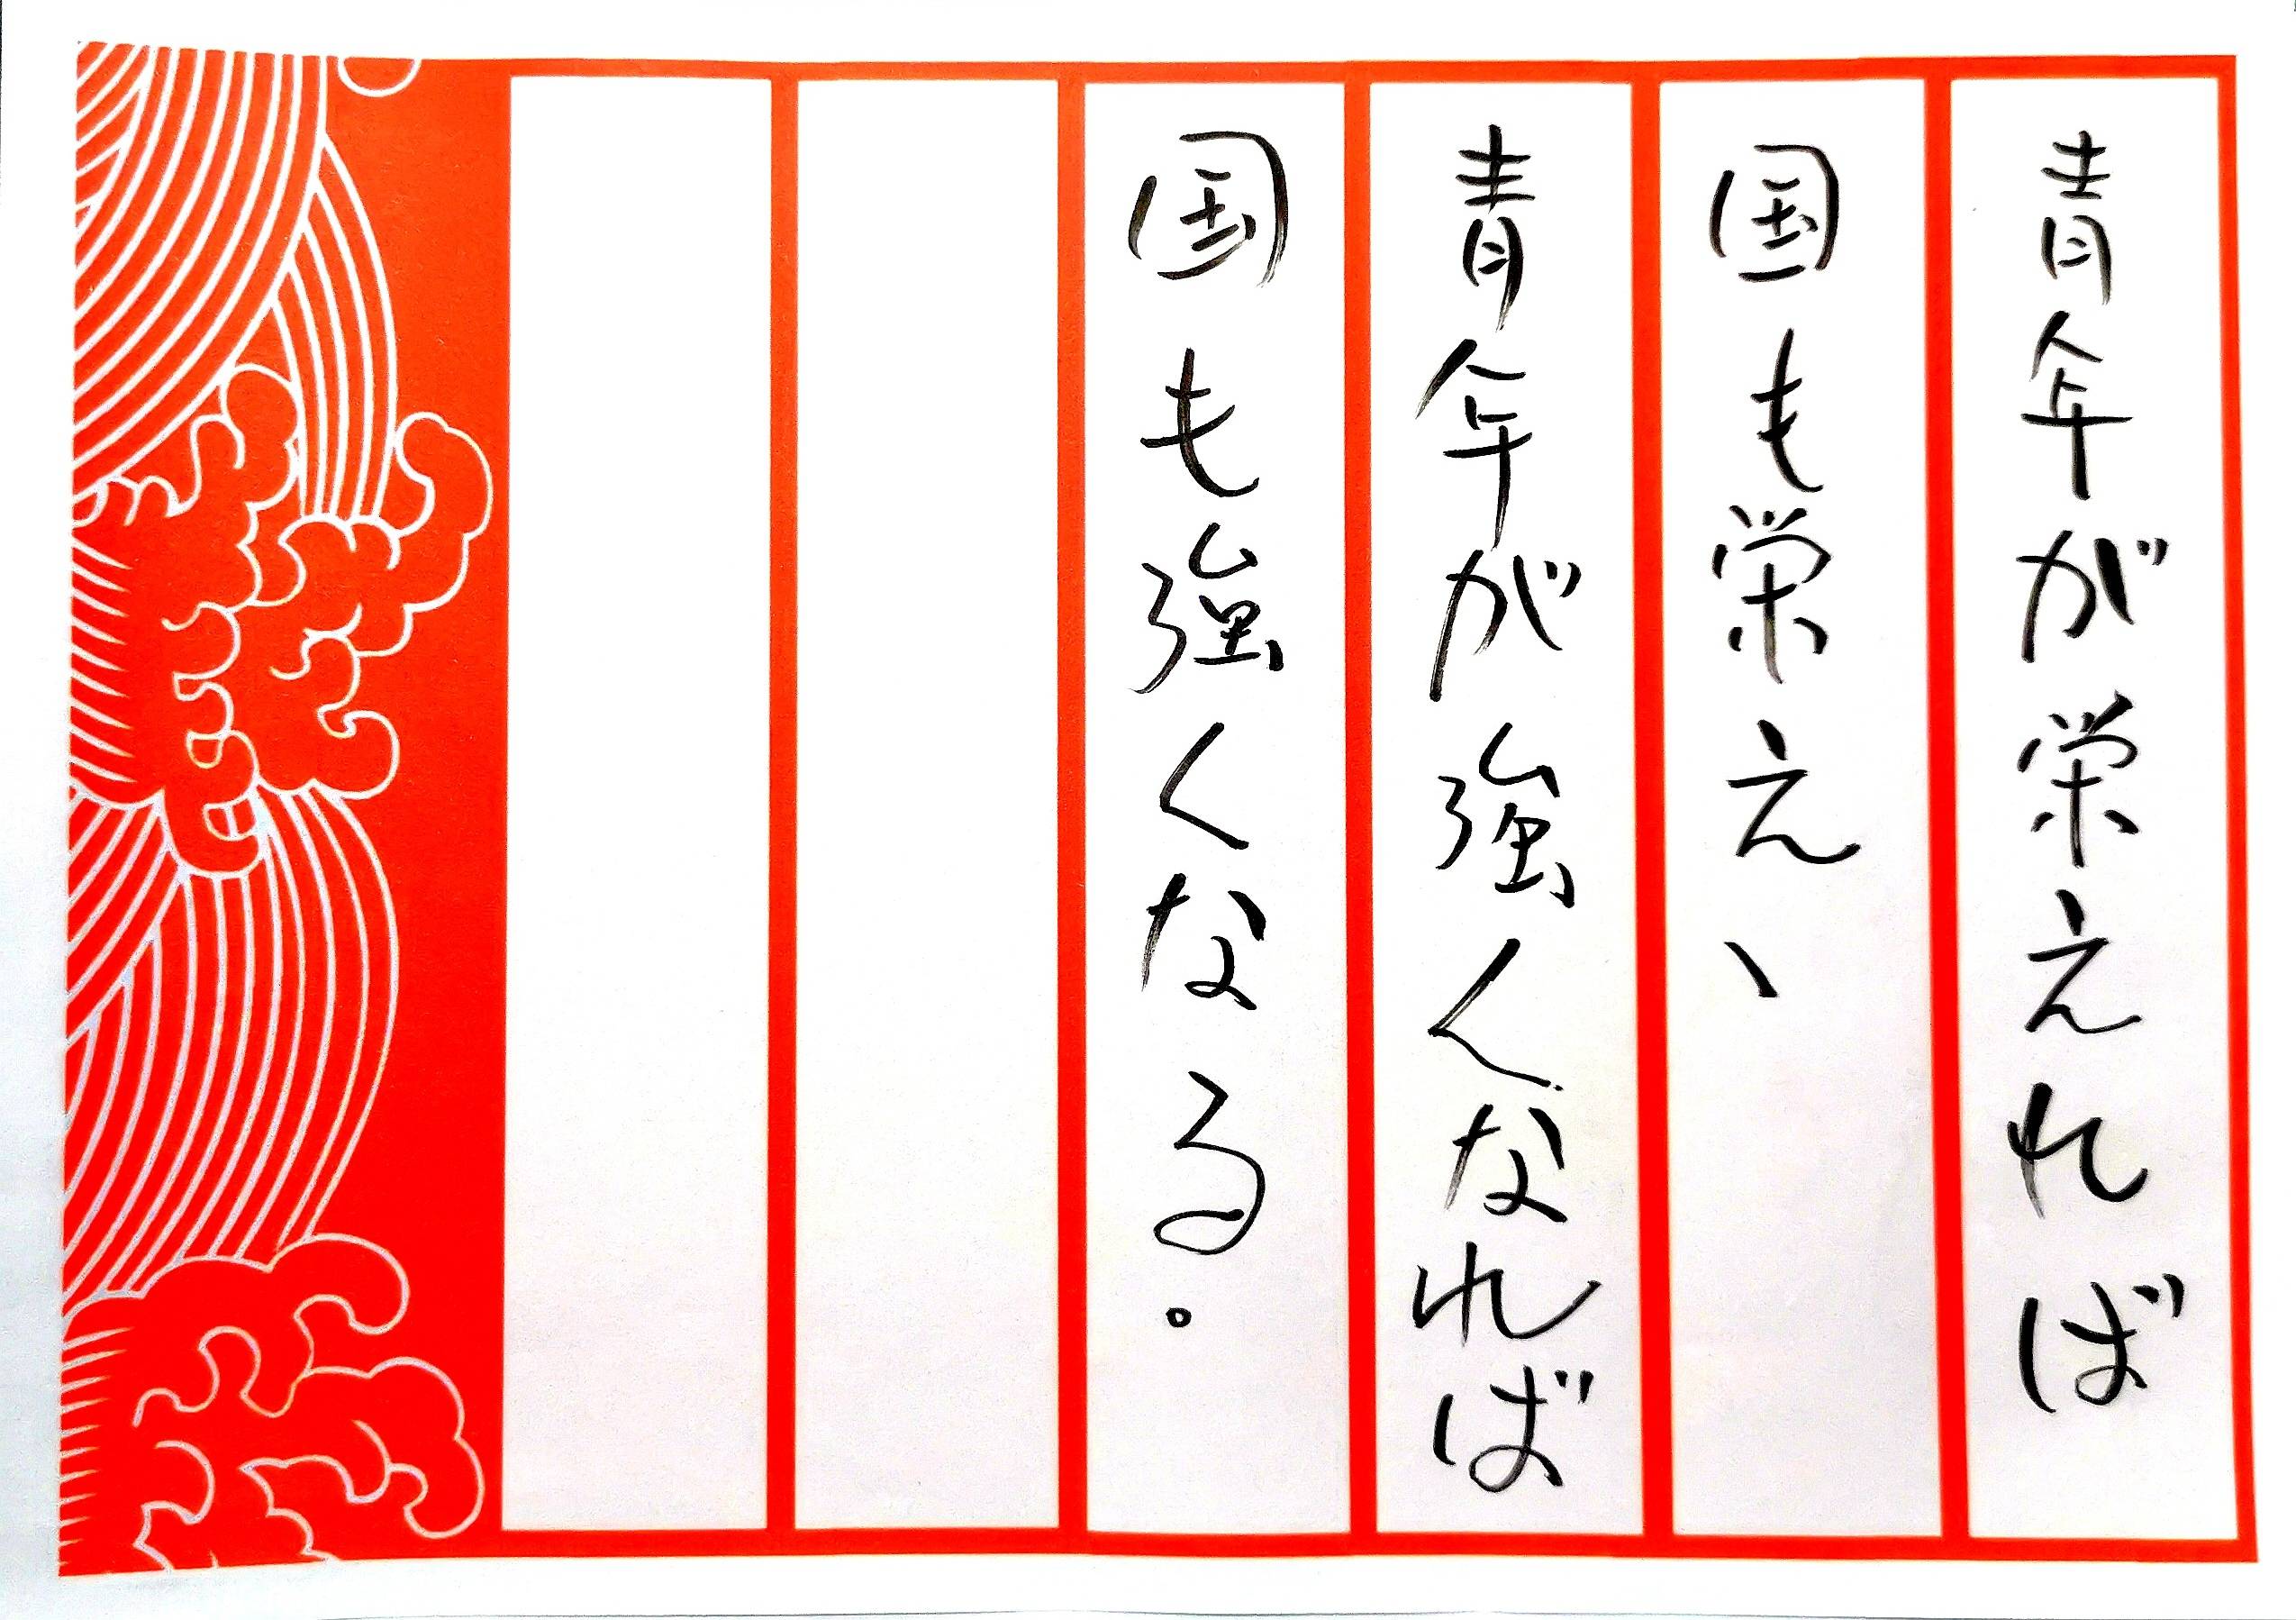 青年が栄えれば
国も栄え、
青年が強くなれば
国も強くなる。